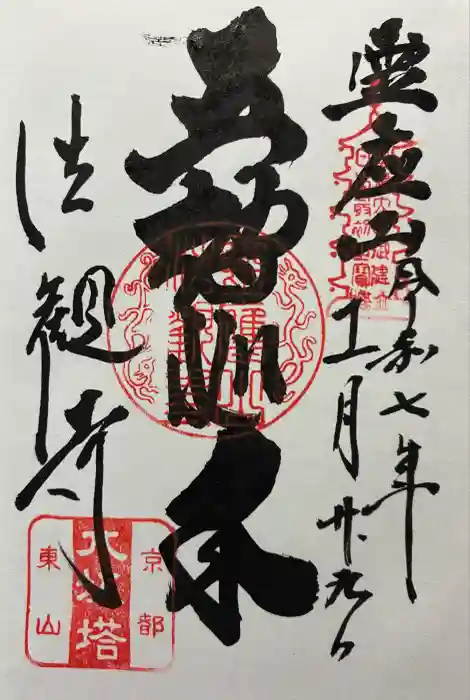 霊應山
令和七年
五月廿九日
五智如来
法観寺
京都
八坂塔
東山